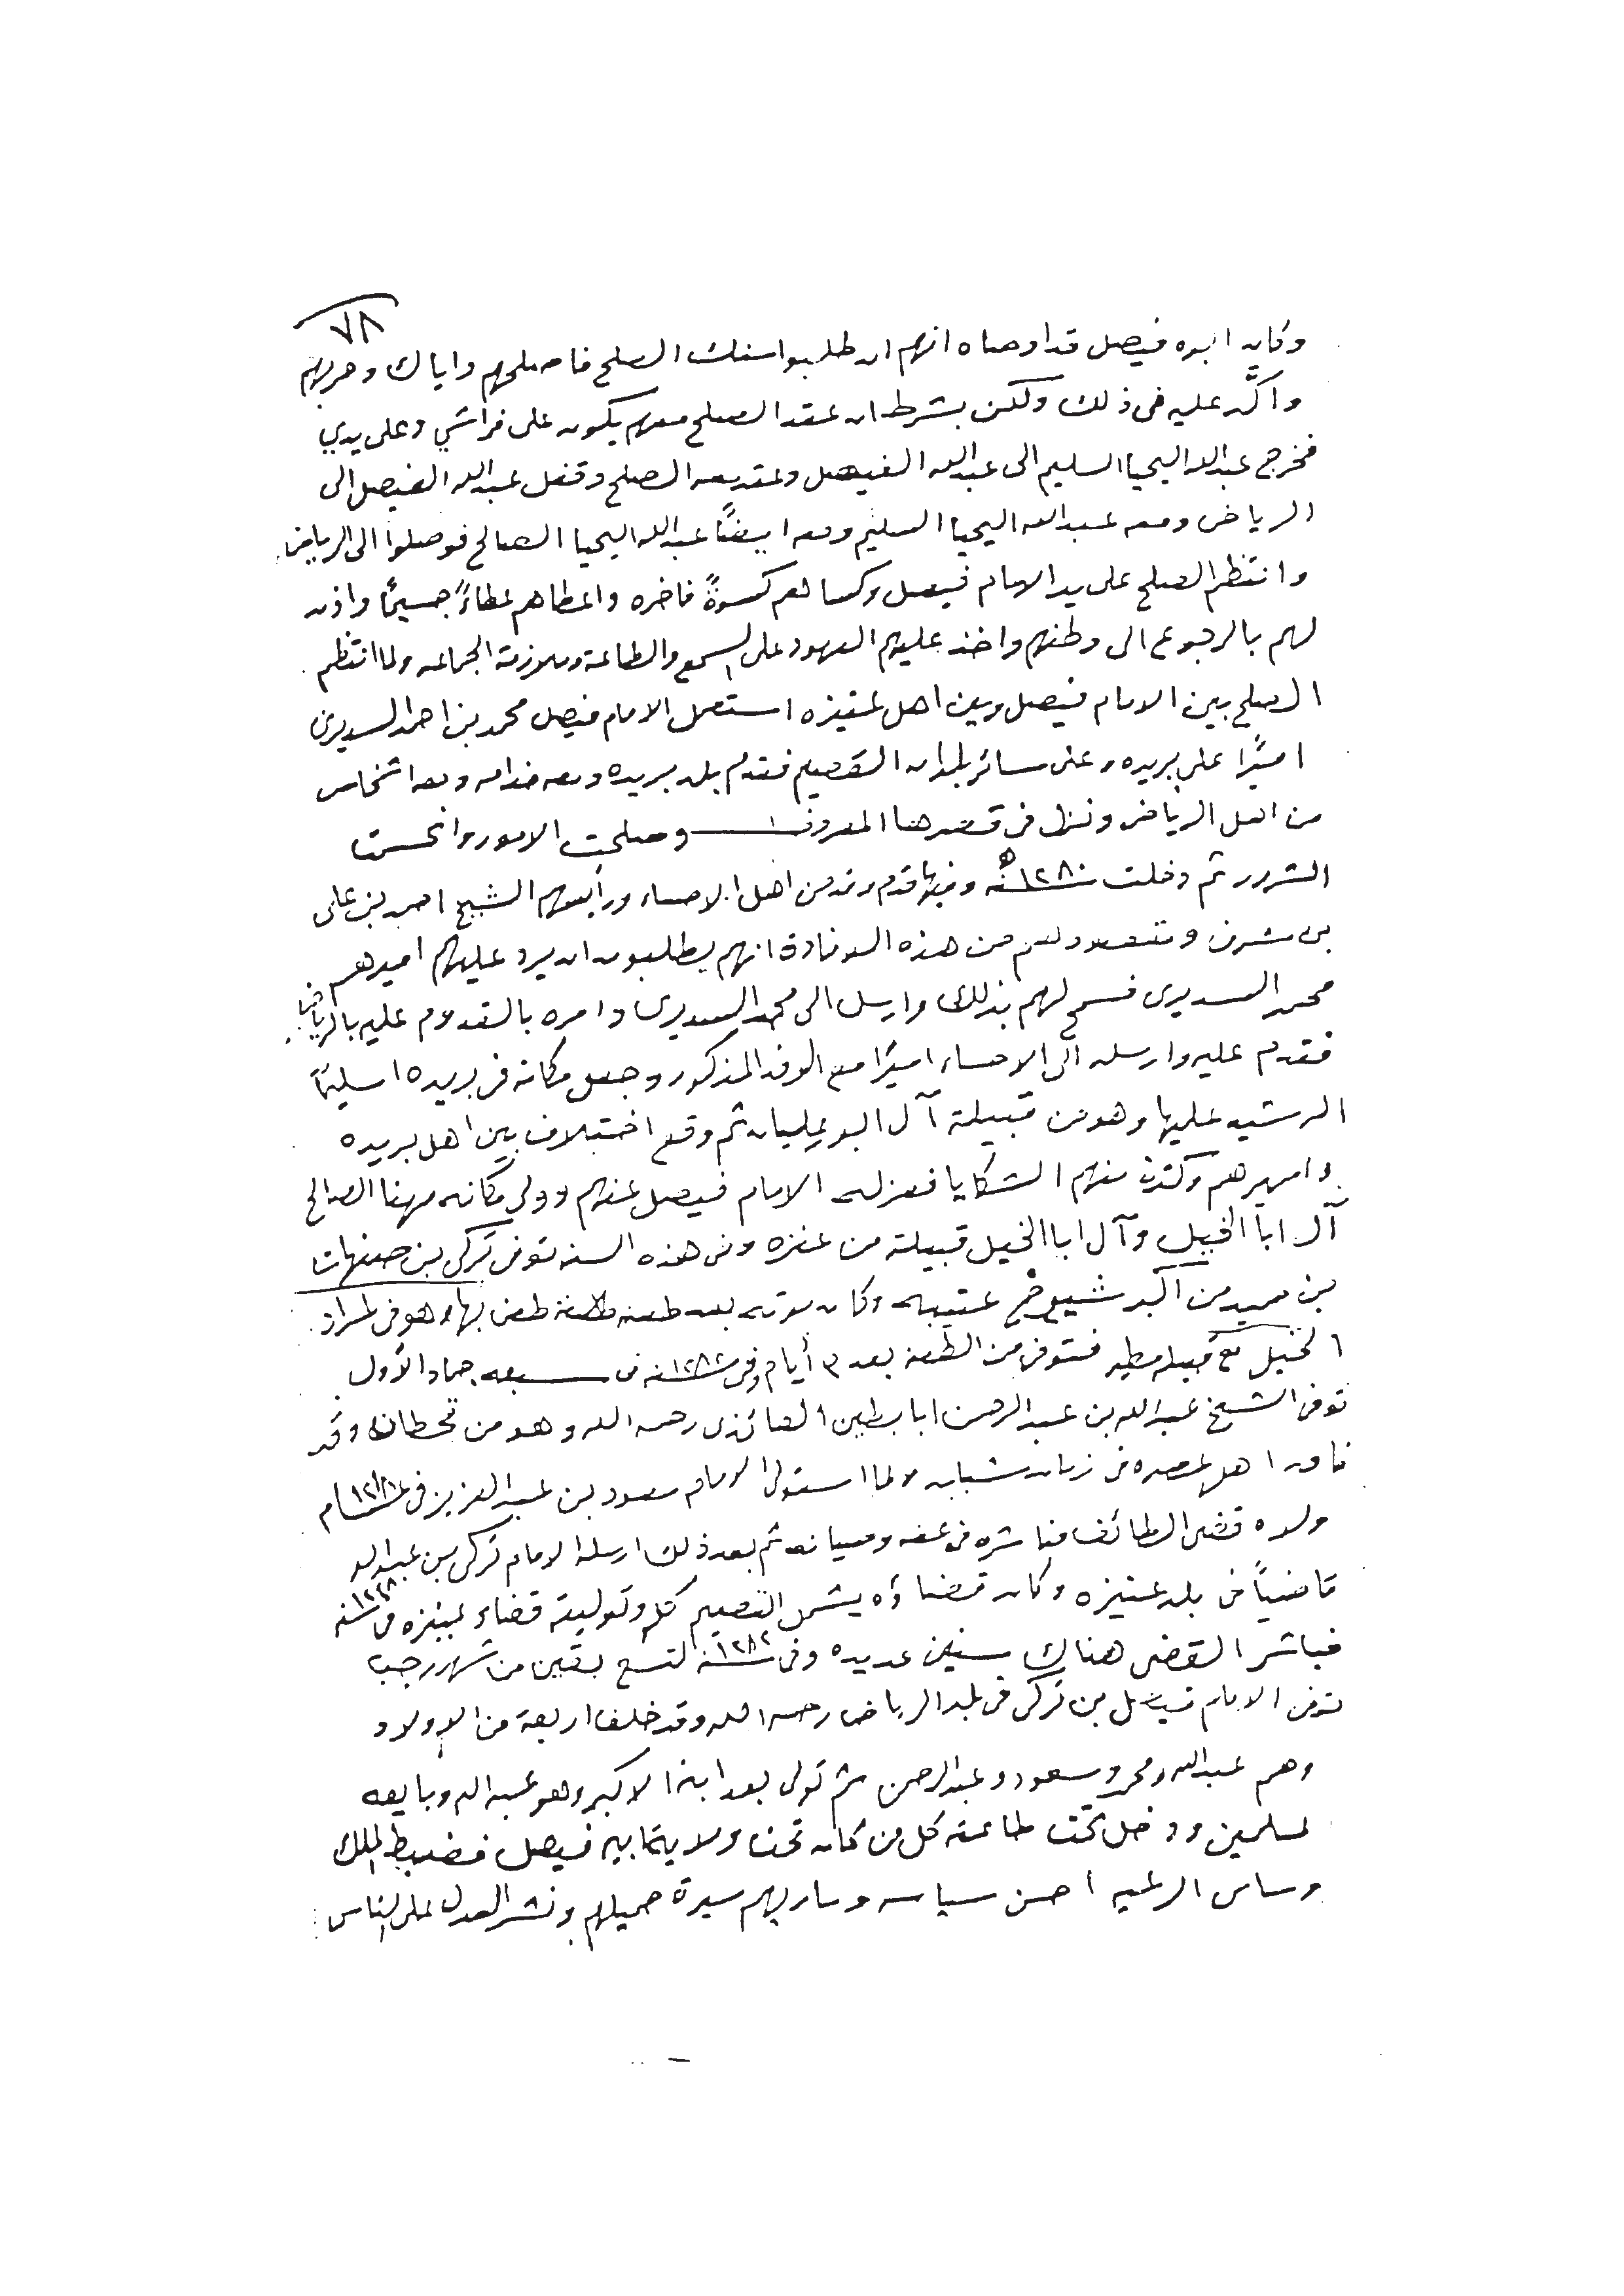 ٧٨
وكان ابوه فيصل قد اوصاه انهم ان طلبوا منك الصلح فاصلحهم واياك وحربهم
واكَّد عليه في ذلك ولكن بشرط ان عقد الصلح معهم يكون على فراشي وعلى يدي
فخرج عبدالله اليحيا السليم الى عبدالله الفيصل وعقد معه الصلح وقفل عبدالله الفيصل الى
الرياض ومعه عبدالله اليحيا السليم ومعه ايضًا عبدالله اليحيا الصالح فوصلوا الى الرياض
وانتظم الصلح على يد الامام فيصل وكساهم كسوةً فاخره واعطاهم عطاءً جسيمًا واذن
لهم بالرجوع الى وطنهم واخذ عليهم العهود على السمع والطاعة وملازمة الجماعه ولما انتظم
الصلح بين الامام فيصل وبين اهل عنيزه استعمل الامام فيصل محمد بن احمد السديري
اميرًا على بريده وعلى سائر بلدان القصيم فقدم بلد بريده ومعه خدامه ومعه اشخاص
من اهل الرياض ونزل في قصرها المعروف وصلحت الامور وانحسمت
الشرور ثم دخلت سنة ١٢٨٠ه وفيها قدم وفد من اهل الاحساء ورأيسهم الشيخ احمد بن علي
بن مشرف ومقصودهم من هذه الوفادة انهم يطلبون ان يرد عليهم اميرهم
محمد السديري فسمح لهم بذلك وارسل الى محمد السديري وامره بالقدوم عليه بالرياض
فقدم عليه وارسله الى الاحساء اميرًا مع الوفد المذكور وجعل مكانه في بريده اسليمًا
الرشيد عليها وهو من قبيلة آل ابو عليان ثم وقع اختلاف بين اهل بريده
واميرهم وكثرت منهم الشكايا فعزله الامام فيصل عنهم وولى مكانه مهنا الصالح
آل ابا الخيل وآل ابا الخيل قبيلة من عنزه وفي هذه السنه توفى تركي بن صنهات
بن حميد من اكبر شيوخ عتيبه وكان موته بعد طعنه طعن بها وهو في طراد
الخيل مع قبيلة مطير فتوفي من الطعنه بعد ٣ أيام وفي سنه ١٢٨٢ في سبعه جماد الأول
توفى الشيخ عبدالله بن عبدالرحمن ابابطين العائذي رحمه الله وهو من قحطان وقد
فاق اهل عصره في زمان شبابه ولما استولى الامام سعود بن عبدالعزيز في عام
ولاه قضى الطائف فباشره في عفه وصيانه ثم بعد ذلك ارسله الامام تركي بن عبدالله
قاضياً في بلد عنيزه وكان قضاؤه يشمل القصيم كله وتوليته قضاء عنيزه في سنه ١٢٤٨
فباشر القضى هناك سنين عديده وفي سنة ١٢٨٢ لتسع بقين من شهر رجب
توفى الامام فيصل بن تركي في بلد الرياض رحمه الله وقد خلف اربعة من الاولاد
وهم عبدالله ومحمد وسعود وعبدالرحمن ثم تولى بعد ابنه الاكبر وهو عبدالله وبايعه
لمسلمين ودخل تحت طاعته كل من كان تحت ولاية ابيه فيصل فضبط الملك
وساس الرعيه احسن سياسه وسار بهم سيرة جميلهم ونشر العدل على الناس